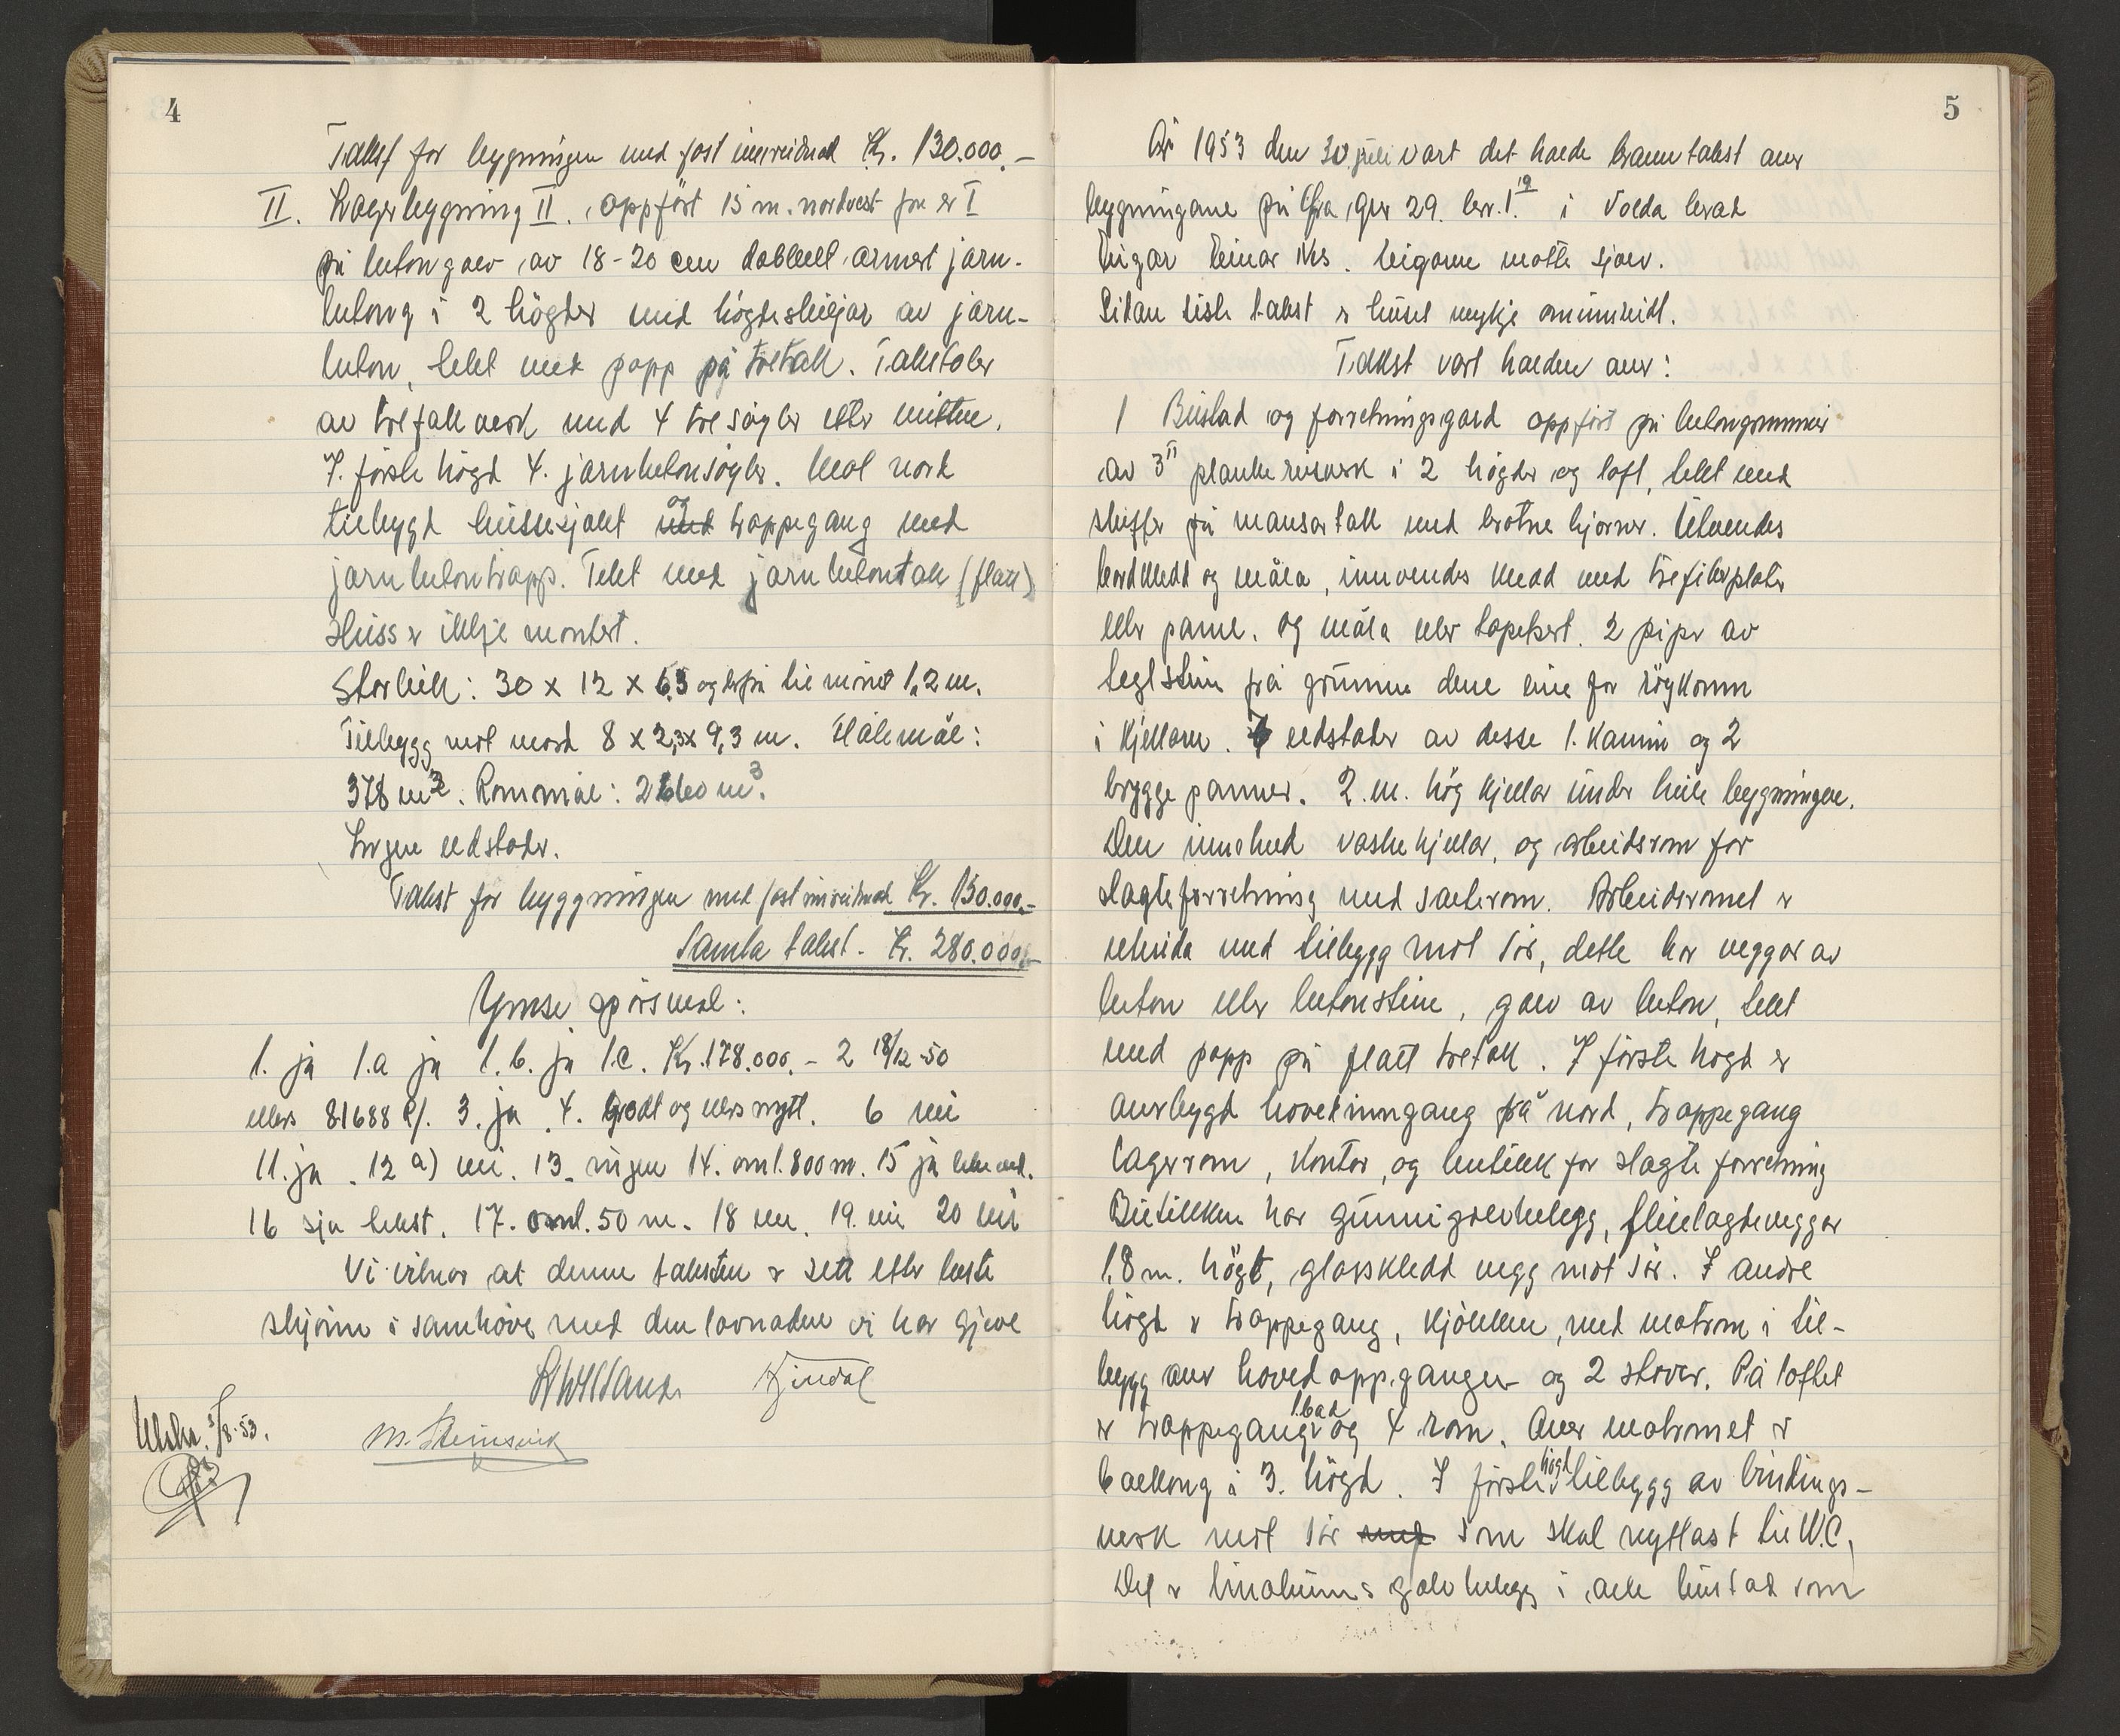 4
Takst for bygningen med fast innreidnad Kr. 130.000.-
II. Lagerbygning II. oppført 15 m. nordvest for nr I
på betongolv av 18-20 cm dobbelt armert jarn-
betong i 2 högder med högdeskiljar av jarn-
beton, tekt med papp på tretak. Takstoler
av trefallverk med 4 tresøyler etter mitten.
I. förste högd 4. jarnbetonsöyler. Mot nord
tilbygd heissesjakt og trappegang med
jarnbetontrapp. Tekt med jarnbetontak (flatt)
Heiss er ikkje montert.
Storleik: 30 x 12 x 6,5 og derfrå til mönet 1,2 m.
Tilbygg mot nord 8 x 2,3 x 9,3 m. Flatemål:
378 m². Rommål: m³.
Ingen eldstader.
Takst for byggningen med fast innreidnad Kr. 150.000.-
Samla takst. Kr. 280.000.-
Ymse spörsmal:
1. ja 1.a ja 1.b. ja 1c. Kr. 178.000.- 2 18/12-50
ellers 81688 3. ja. 4. Godt og nytt. 6 nei
11. ja. 12 a) nei. 13. ingen 14. oml. 800 m. 15 ja
16 sja takst. 17. oml. 50 m. 18 19. nei 20 nei
Vi vitnar at denne taksten er sett etter beste
skjönn i samhöve med den lovnaden vi har gjeve
M. Steinsvik
3/8-53.
5
År 1953 den 30 juli vart det halde branntakst over
bygningane på gnr 29. bnr. 1.19 i Volda herad
Eigar Einar Eigaren møtte sjølv.
Sidan siste takst er huset mykje ominnreidt.
Takst vart halden over:
1 Bustad og forretningsgard oppfört på betongrunnmur
av 3" plankereisverk i 2 högder og loft, tekt med
skiffer på mansartak med brotne hjørner. Utvendes
bordkledd og måla, innvendes kledd med trefiberplater
eller panel. og måla eller tapetsert. 2 piper av
teglstein frå grunnen den eine for röykomn
i kjellaren. 7 eldstader av desse 1. kamin og 2
bryggepanner. 2. m. hög kjellar under heile bygningen.
Den inneheld vaskekjellar, og arbeidsrom for
slagteforretning med salterom. Arbeidsromet er
utvida med tilbygg mot sör, dette har veggar av
beton eller betonstein, golv av beton, tekt
med papp på flatt tretak. I förste högd er
overbygd hovedinngang frå nord, trappegang
lagerrom, kontor, og butikk for slagteforretning
Butikken har gummigolvbelegg, fliselagde veggar
1,8 m. högt, glasskledd vegg mot sör. I andre
högd er trappegang, kjökken, med matrom i til-
bygg over hovedoppgangen og 2 stover. På loftet
er trappegang 1. bad og 4 rom. Over matromet er
balkong i 3. högd. I förste högd tilbygg av bindings-
verk mot sör som skal nyttast til W.C.
Det er linoleums golvbelegg i alle bustad rom